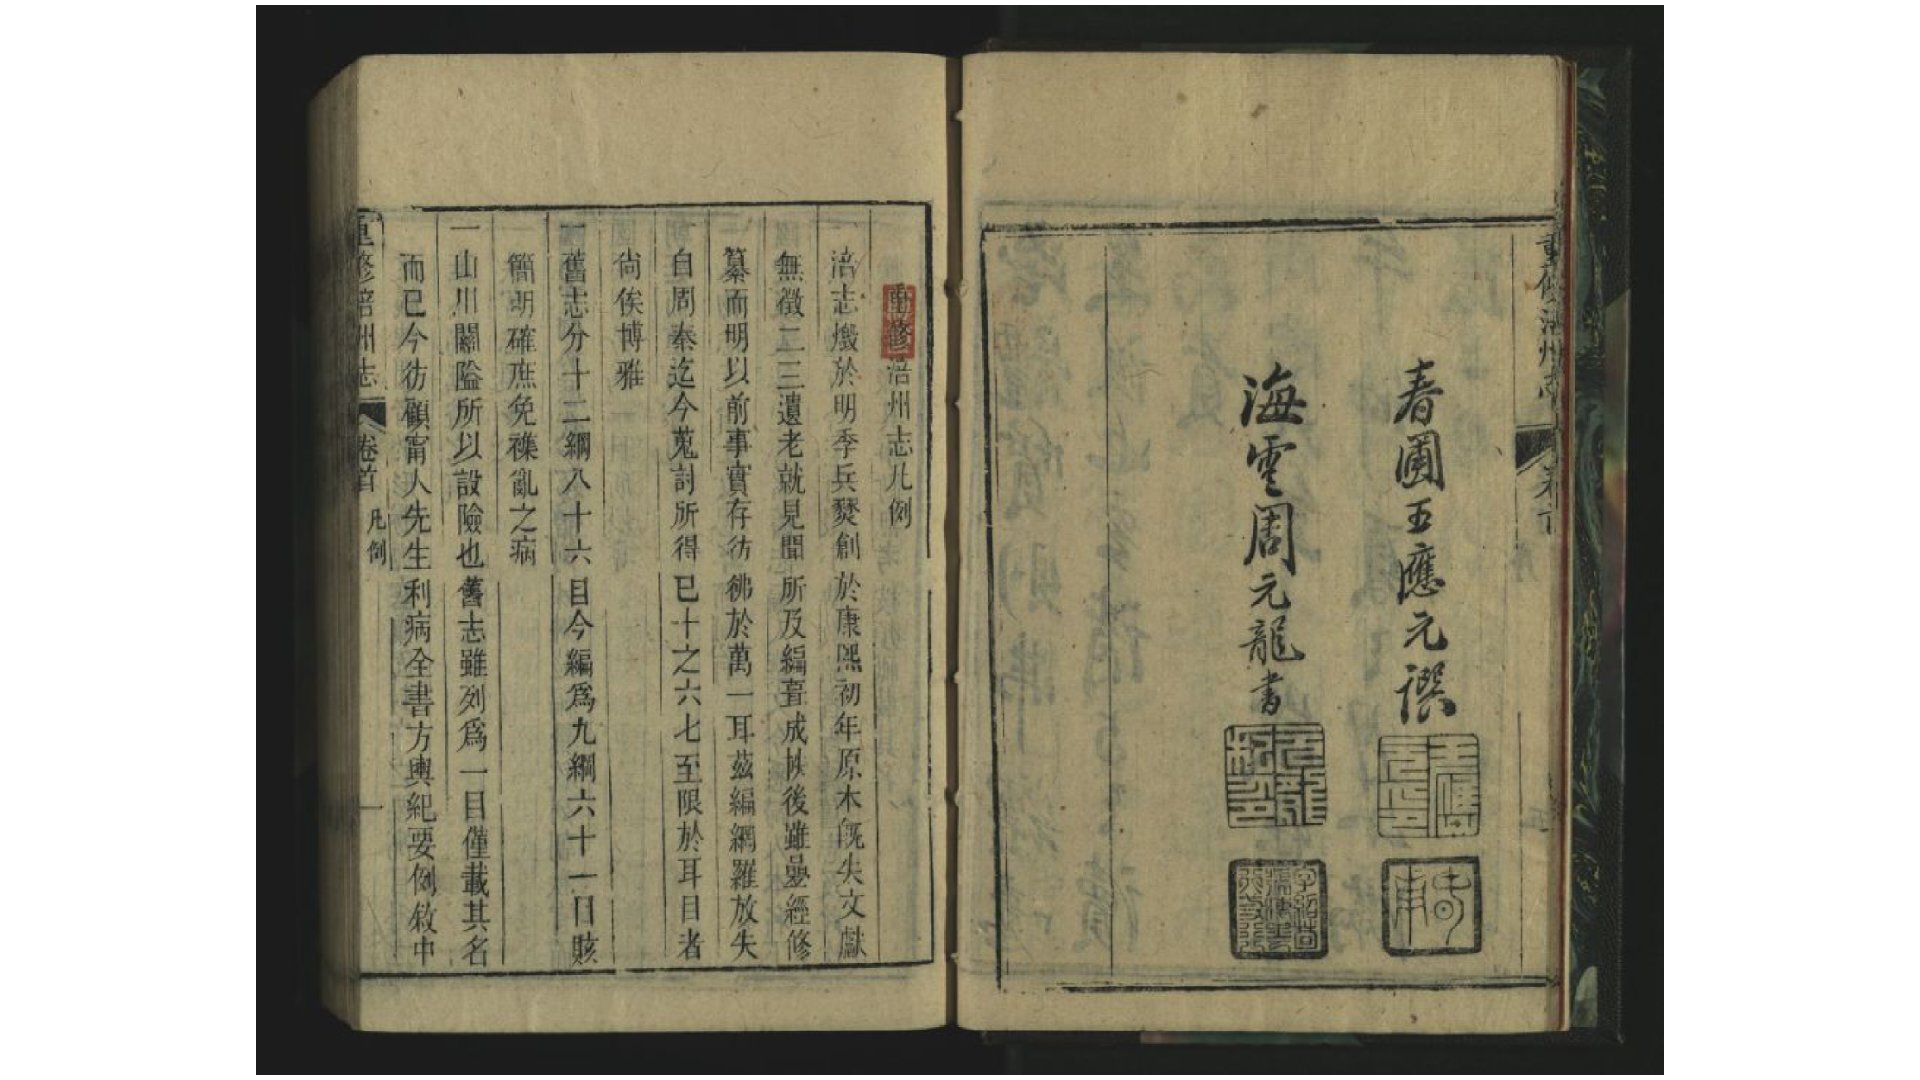 春圃王應元譔
海雲周元龍書
重修涪州志凡例
涪志燬於明季兵燹創於康熙初年原本既失文獻
無徵二三遺老就見聞所及編葺成帙後雖疊經修
纂而明以前事實存彷彿於萬一耳茲編網羅放失
自周秦迄今蒐討所得已十之六七至限於耳目者
尚俟博雅
一舊志分十二綱八十六目今編爲九綱六十一目賅
簡明確庶免襍亂之病
一山川關隘所以設險也舊志雖列爲一目僅載其名
而已今彷顧甯人先生利病全書方輿紀要例敘中
重修涪州志 卷首 凡例 一